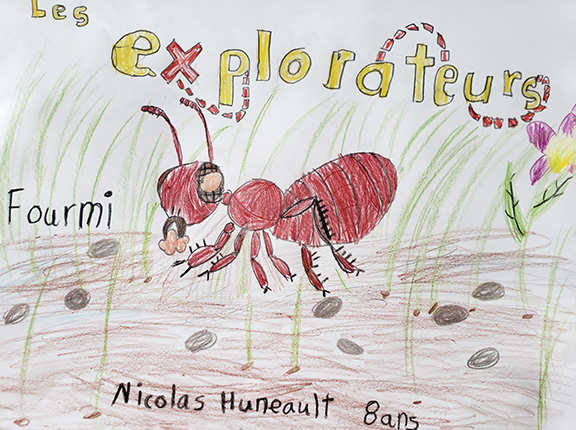 Les
explorateurs
Fourmi
Nicolas Huneault 8ans